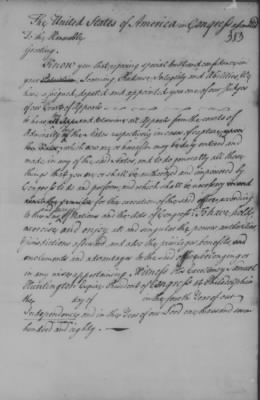 The United States of America in Congress assembled
To the Honorable
383
Greeting.
Know you that reposing special trust and confidence in
your Patriotism, Learning, Prudence, Integrity and Abilities, We
have assigned, deputed and appointed you one of our Judges
of our Court of Appeals
to hear and determine all Appeals from the courts of
Admiralty in the States respectively in cases of capture, upon
which now are or hereafter may be duly entered and
made in any of the said States, and to do generally all those
things that you are or shall be authorized and impowered by
Congress to do and perform, and which shall be necessary
for the execution of the said office, according
to the Law of Nations and the Acts of Congress; To have, hold,
exercise and enjoy all and singular the powers, authorities,
jurisdictions aforesaid, and also the privileges, benefits, and
emoluments and advantages to the said office belonging or
in any wise appertaining. Witness His Excellency Samuel
Huntington Esquire President of Congress at Philadelphia
the day of in the fourth Year of our
Independency and in the Year of our Lord one thousand seven
hundred and eighty.